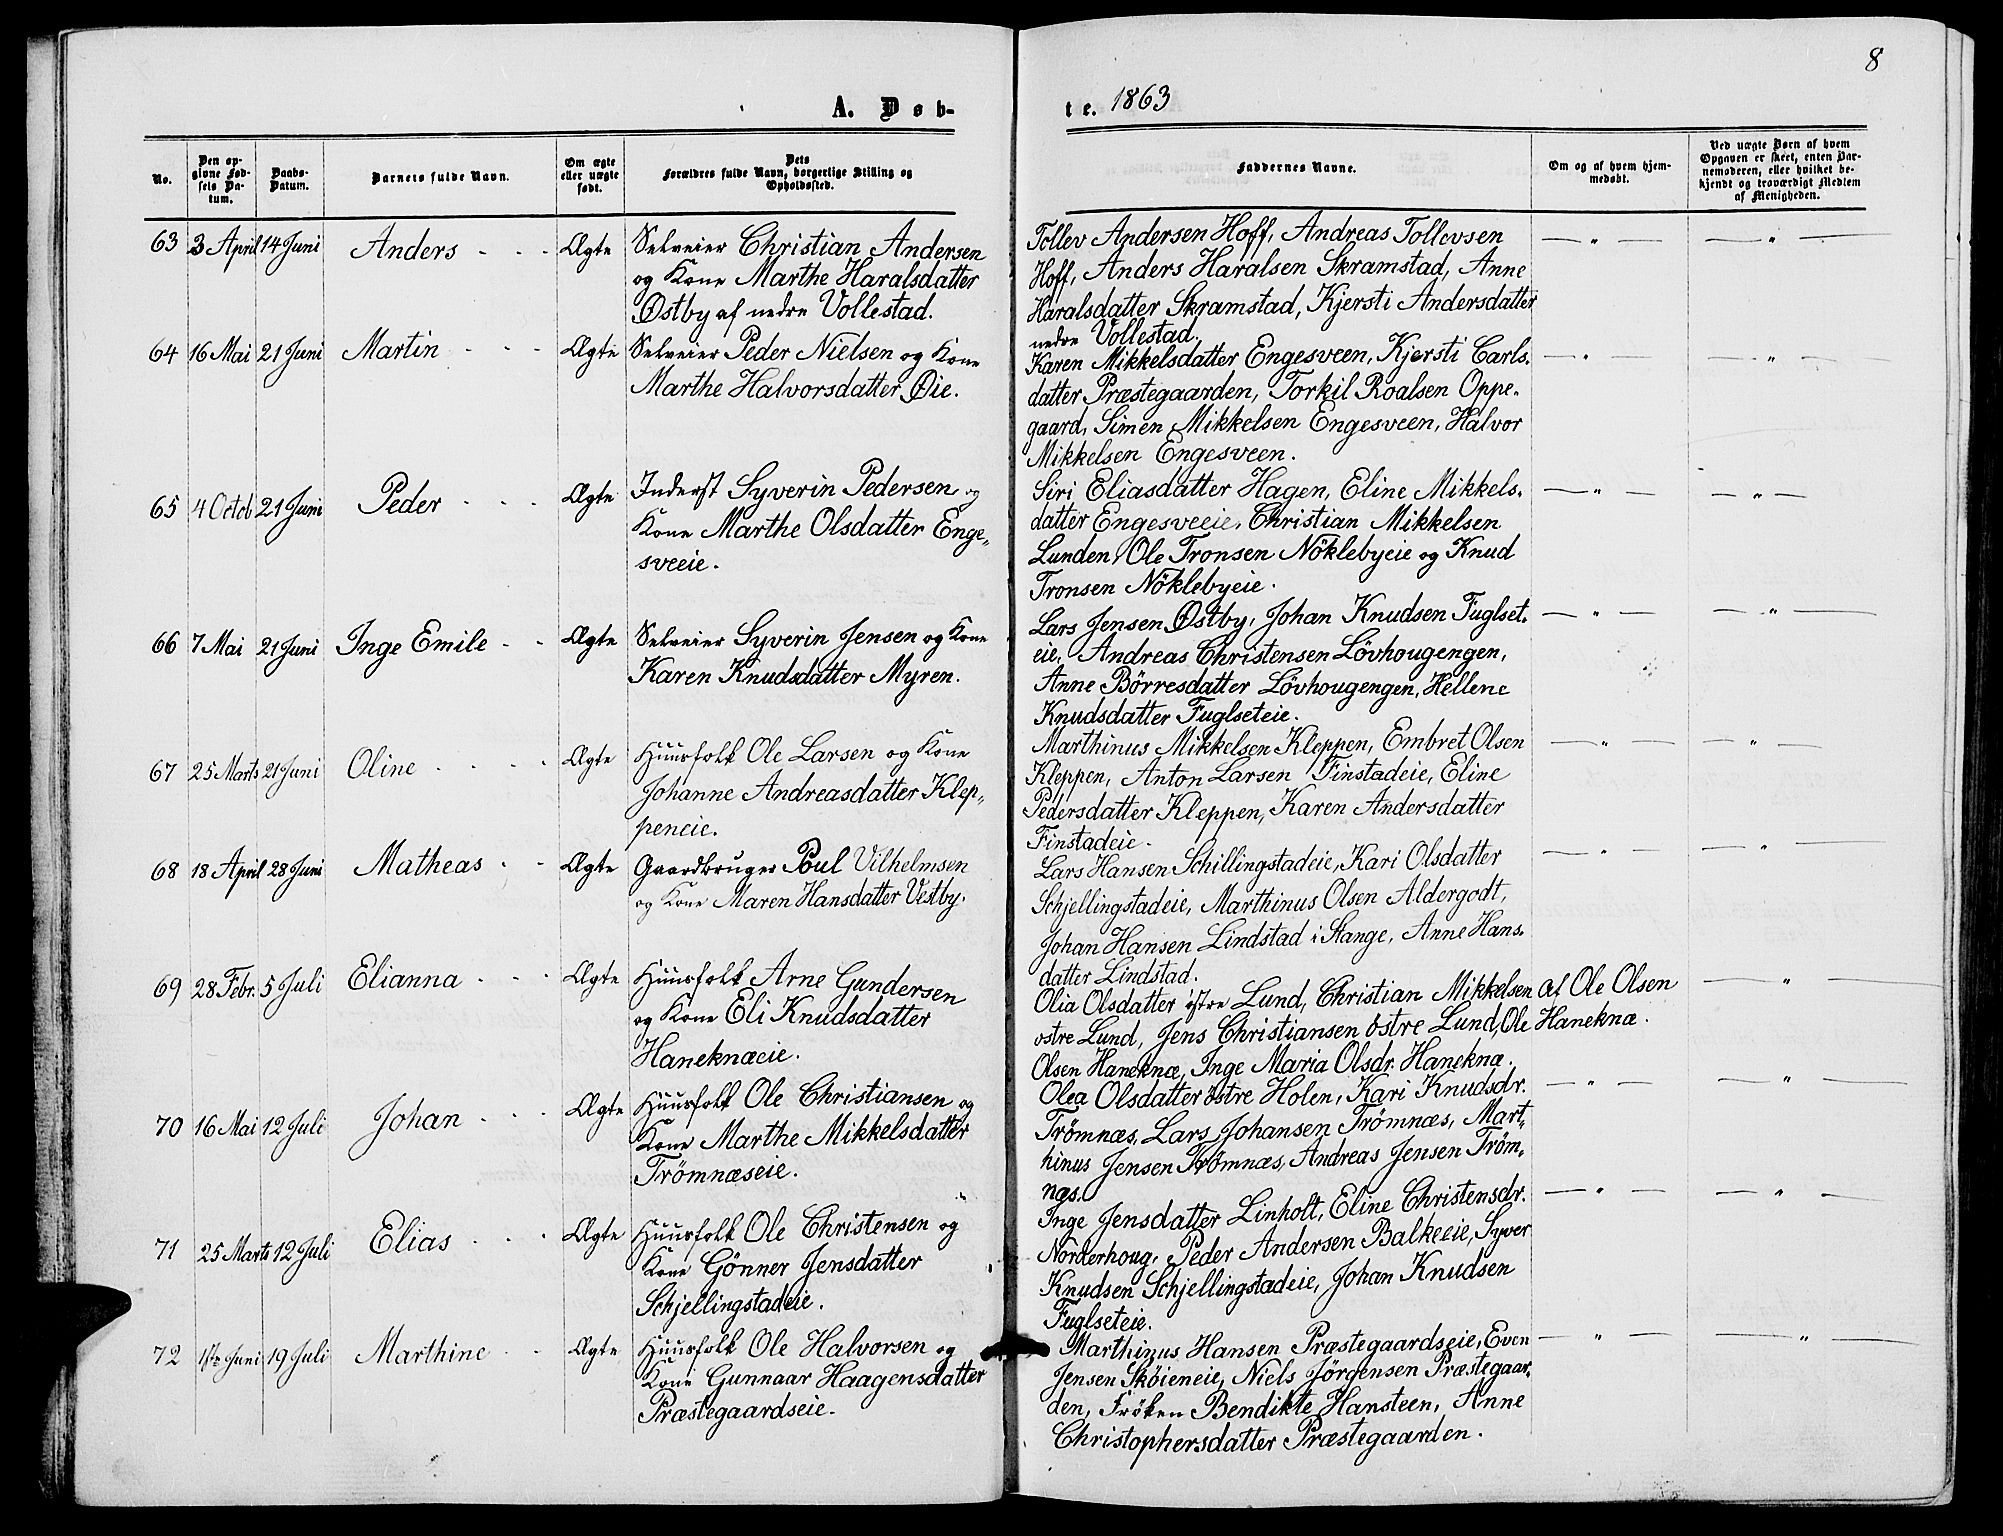 8
A. Døb-
te. 1863
No.
Den op-
givne Fød-
sels Da-
tum.
Daabs-
Datum.
Barnets fulde Navn.
Om ægte
eller uægte
født.
Dets
Forældres fulde Navn, borgerlige Stilling og
Opholdssted.
Faddernes Navne.
Om og af hvem hjem-
medøbt.
Ved uægte Børn af hvem
Opgaven er skeet, enten Bar-
nemoderen, eller hvilket be-
kjendt og troværdigt Medlem
af Menigheden.
63 3 April 14 Juni Anders - - - Ægte
Selveier Christian Andersen
og Kone Marthe Haralsdatter
Østby af nedre Vollestad.
Tollev Andersen Hoff, Andreas Tollevsen
Hoff, Anders Haralsen Skramstad, Anne
Haralsdatter Skramstad, Kjersti Andersdatter
nedre Vollestad.
— " — — " —
64 16 Mai 21 Juni Martin - - - Ægte
Selveier Peder Nielsen og Kone
Marthe Halvorsdatter Øie.
Karen Mikkelsdatter Engesveen, Kjersti Carls-
datter Præstegaarden, Torkil Roalsen Oppe-
gaard, Simen Mikkelsen Engesveen, Halvor
Mikkelsen Engesveen.
— " — — " —
65 4 Octob 21 Juni Peder - - - Ægte
Inderst Syverin Pedersen og
Kone Marthe Olsdatter Enge-
sveeie.
Siri Eliasdatter Hagen, Eline Mikkels-
datter Engesveeie, Christian Mikkelsen
Lunden, Ole Tronsen Nöklebyeie og Knud
Tronsen Nöklebyeie.
— " — — " —
66 7 Mai 21 Juni Inge Emilie - - Ægte
Selveier Syverin Jensen og Kone
Karen Knudsdatter Myren.
Lars Jensen Østby, Johan Knudsen Fuglset-
eie, Andreas Christensen Lövhougengen,
Anne Börresdatter Lövhougengen, Hellene
Knudsdatter Fuglseteie.
— " — — " —
67 25 Marts 21 Juni Oline - - - - Ægte
Huusfolk Ole Larsen og Kone
Johanne Andreasdatter Klep-
peneie.
Marthinus Mikkelsen Kleppen, Embret Olsen
Kleppen, Anton Larsen Finstadeie, Eline
Pedersdatter Kleppen, Karen Andersdatter
Finstadeie.
— " — — " —
68 18 April 28 Juni Matheas - - Ægte
Gaardbruger Poul Vilhelmsen
og Kone Maren Hansdatter Vestby.
Lars Hansen Schillingstadeie, Kari Olsdatter
Schjellingstadeie, Marthinus Olsen Aldergodt,
Johan Hansen Lindstad i Stange, Anne Hans-
datter Lindstad.
— " — — " —
69 28 Febr. 5 Juli Elianna - - - Ægte
Huusfolk Arne Gundersen
og Kone Eli Knudsdatter
Haneknæeie.
Olia Olsdatter östre Lund, Christian Mikkelsen
östre Lund, Jens Christiansen östre Lund, Ole
Olsen Haneknæ, Inge Maria Olsdr. Haneknæ.
af Ole Olsen
Haneknæ.
— " —
70 16 Mai 12 Juli Johan - - - Ægte
Huusfolk Ole Christiansen og
Kone Marthe Mikkelsdatter
Trömnæseie.
Olea Olsdatter östre Holen, Kari Knudsdr.
Trömnæs, Lars Johansen Trömnæs, Mart-
hinus Jensen Trömnæs, Andreas Jensen Tröm-
næs.
— " — — " —
71 25 Marts 12 Juli Elias - - - Ægte
Huusfolk Ole Christensen og
Kone Gönner Jensdatter
Schjellingstadeie.
Inge Jensdatter Linholt, Eline Christensdr.
Norderhoug, Peder Andersen Balkeeie, Syver
Knudsen Schjellingstadeie, Johan Knudsen
Fuglseteie.
— " — — " —
72 1ste Juni 19 Juli Marthine - - Ægte
Huusfolk Ole Halvorsen og
Kone Gunnaar Haagensdatter
Præstegaardseie.
Marthinus Hansen Præstegaardseie, Even
Jensen Sköieneie, Niels Jörgensen Præstegaar-
den, Fröken Bendikte Hansteen, Anne
Christophersdatter Præstegaarden.
— " — — " —